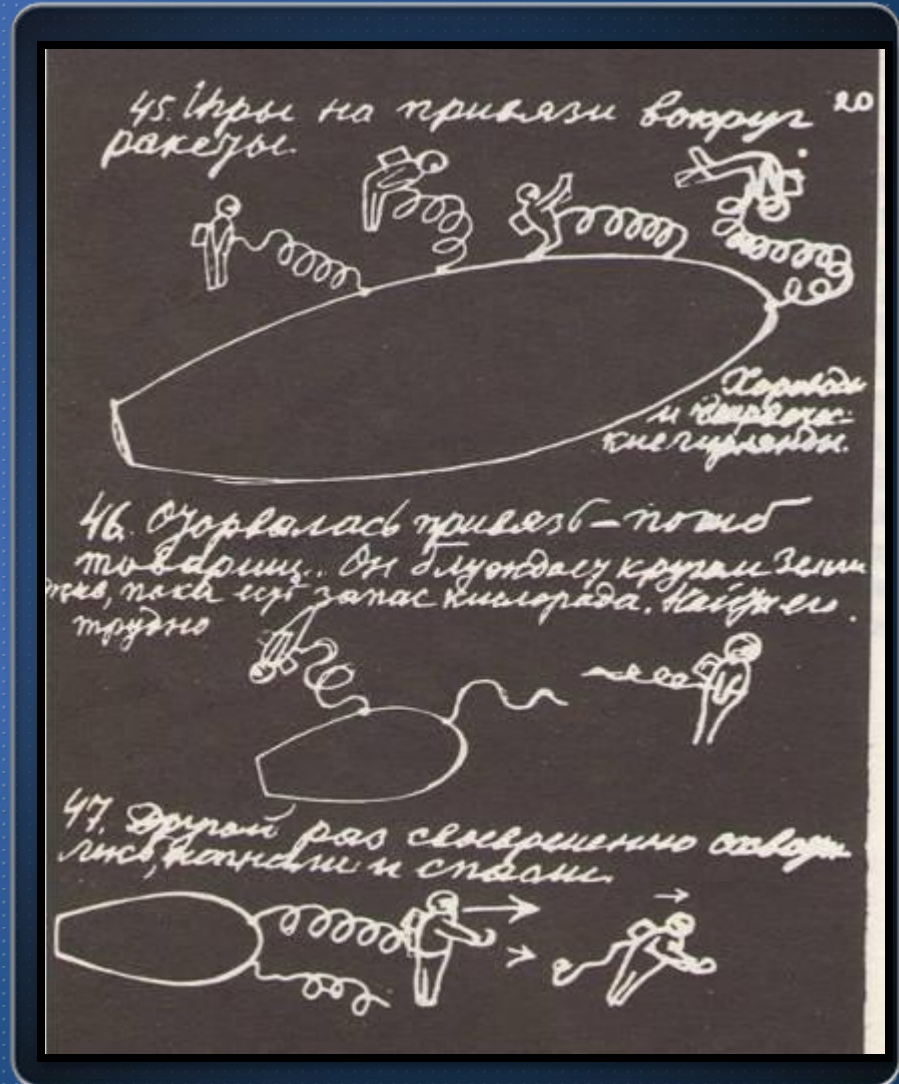 45. Игры на привязи вокруг 20
ракеты.
Хороводы
и человече-
ские гирлянды.
46. Оторвалась привязь – погиб
товарищ.. Он блуждает кругом Земли
жив, пока есть запас кислорода. Найти его
трудно
47. Другой раз своевременно схвати
лись, нагнали и спасли.